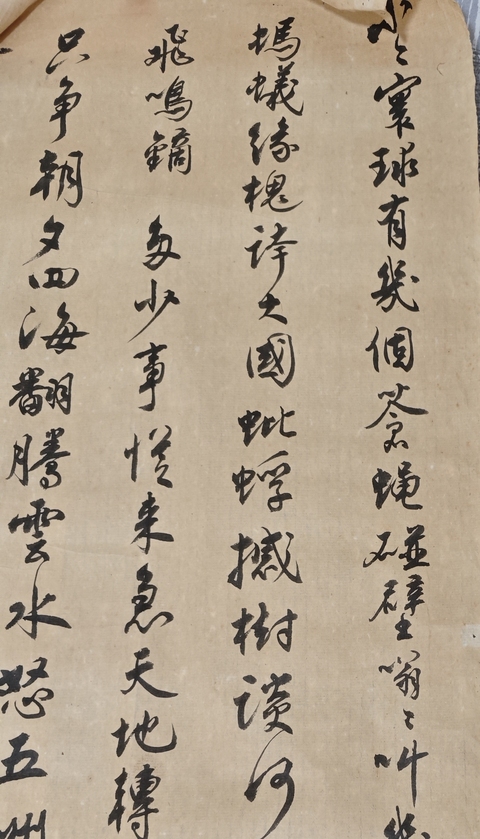 小々寰球有幾個蒼蝇碰壁嗡々叫幾
螞蟻緣槐誇大國蚍蜉撼樹談何
飛鳴鏑 多少事從来急天地轉
只争朝夕四海翻騰雲水怒五洲